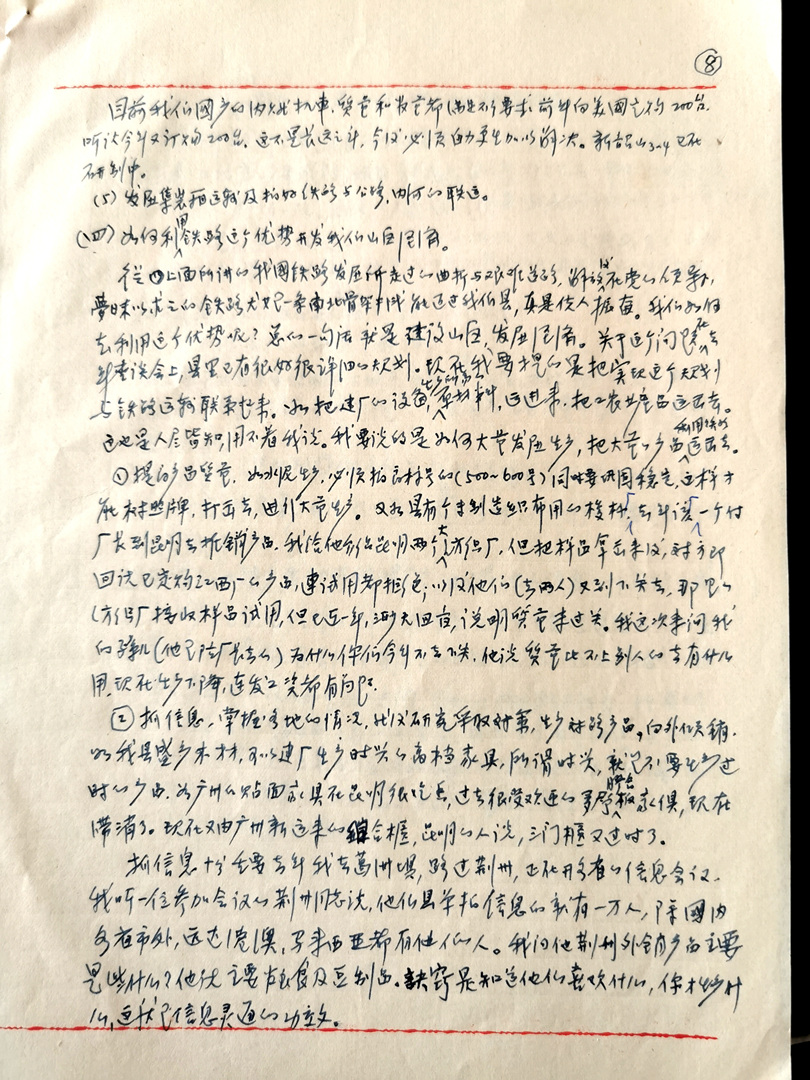 ⑧
目前我们國产的内燃机車,质量和数量都满足不了要求,前年向美国定购200台,
听说今年又订购200台,这不是长远之计,今后必须自力更生加以解决。新
研制中。
(5)发展集装箱运输及搞好铁路与公路,内河的联运。
(四)如何利用铁路这个优势开发我们山区
从上面所讲的我國铁路发展所走过的曲折与艰难道路,解放在党的领导下,
夢寐以求的铁路尤其一条南北骨架中线能通过我们县,真是使人振奋。我们如何
去利用这个优势呢?总的一句话就是建设山区,发展。关于这个问题在去
年座谈会上,县里已有很好很详细的规划。现在我要提的是把实现这个规划
与铁路运输联系起来。如把建厂的设备,原材料,运进来,把工农业产品运出去。
这也是人尽皆知,用不着我说。我要说的是如何大量发展生产,把大量产品利用铁路运出去。
①提高产品质量,如水泥生产,必须搞高标号的(500~600号)同时要巩固稳定,这样才
能树牌,打出去,进行大量生产。又如县有个专制造织布用的梭,去年该一个付
厂长到昆明去推销产品,我给他介绍昆明两个大纺织厂,但把样品拿出来后,对方即
回说已定购江西厂的产品,連试用都拒绝,以后他们(去两人)又到下关去,那里的
纺织厂接收样品试用,但已近一年,渺无回音,说明质量未过关。我这次来问我
的孫儿(他已陪厂长去的)为什么你们今年不去下关,他说质量比不上别人的去有什么
用,现在生产下降,连发工资都有问题。
②抓信息,掌握各地的情况,然后研究采取对策,生产对路产品,向外倾销。
如我县盛产木材,可以建厂生产时兴的高档家具,所谓时兴,就是不要生产过
时的产品,如广州的贴面家具在昆明很吃香,过去很受欢迎的胶合板家俱,现在
滞消了。现在又由广州新运来的組合柜,昆明的人说,三门櫃又过时了。
抓信息十分重要去年我去葛洲坝,路过荆州,正在开各省的信息会议,
我听一位参加会议的荆州同志说,他们县单搞信息的就有一万人,除國内
各省市外,远达港澳,马来西亚都有他们人。我问他荆州外销产品主要
是些什么?他说主要及豆制品。訣窍是知道他们喜欢什么,你才生产什
么,这就是信息灵通的功效。